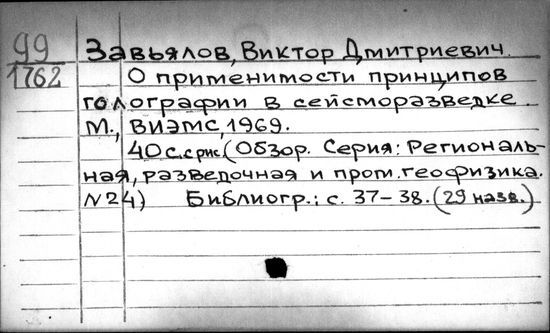 99
1762
Завьялов, Виктор Дмитриевич.
О применимости принципов
голографии в сейсморазведке.
М., ВИЭМС, 1969.
40 с. с рис (Обзор. Серия: Региональ-
ная, разведочная и пром. геофизика.
N24) Библиогр.: с. 37-38. (29 назв.)